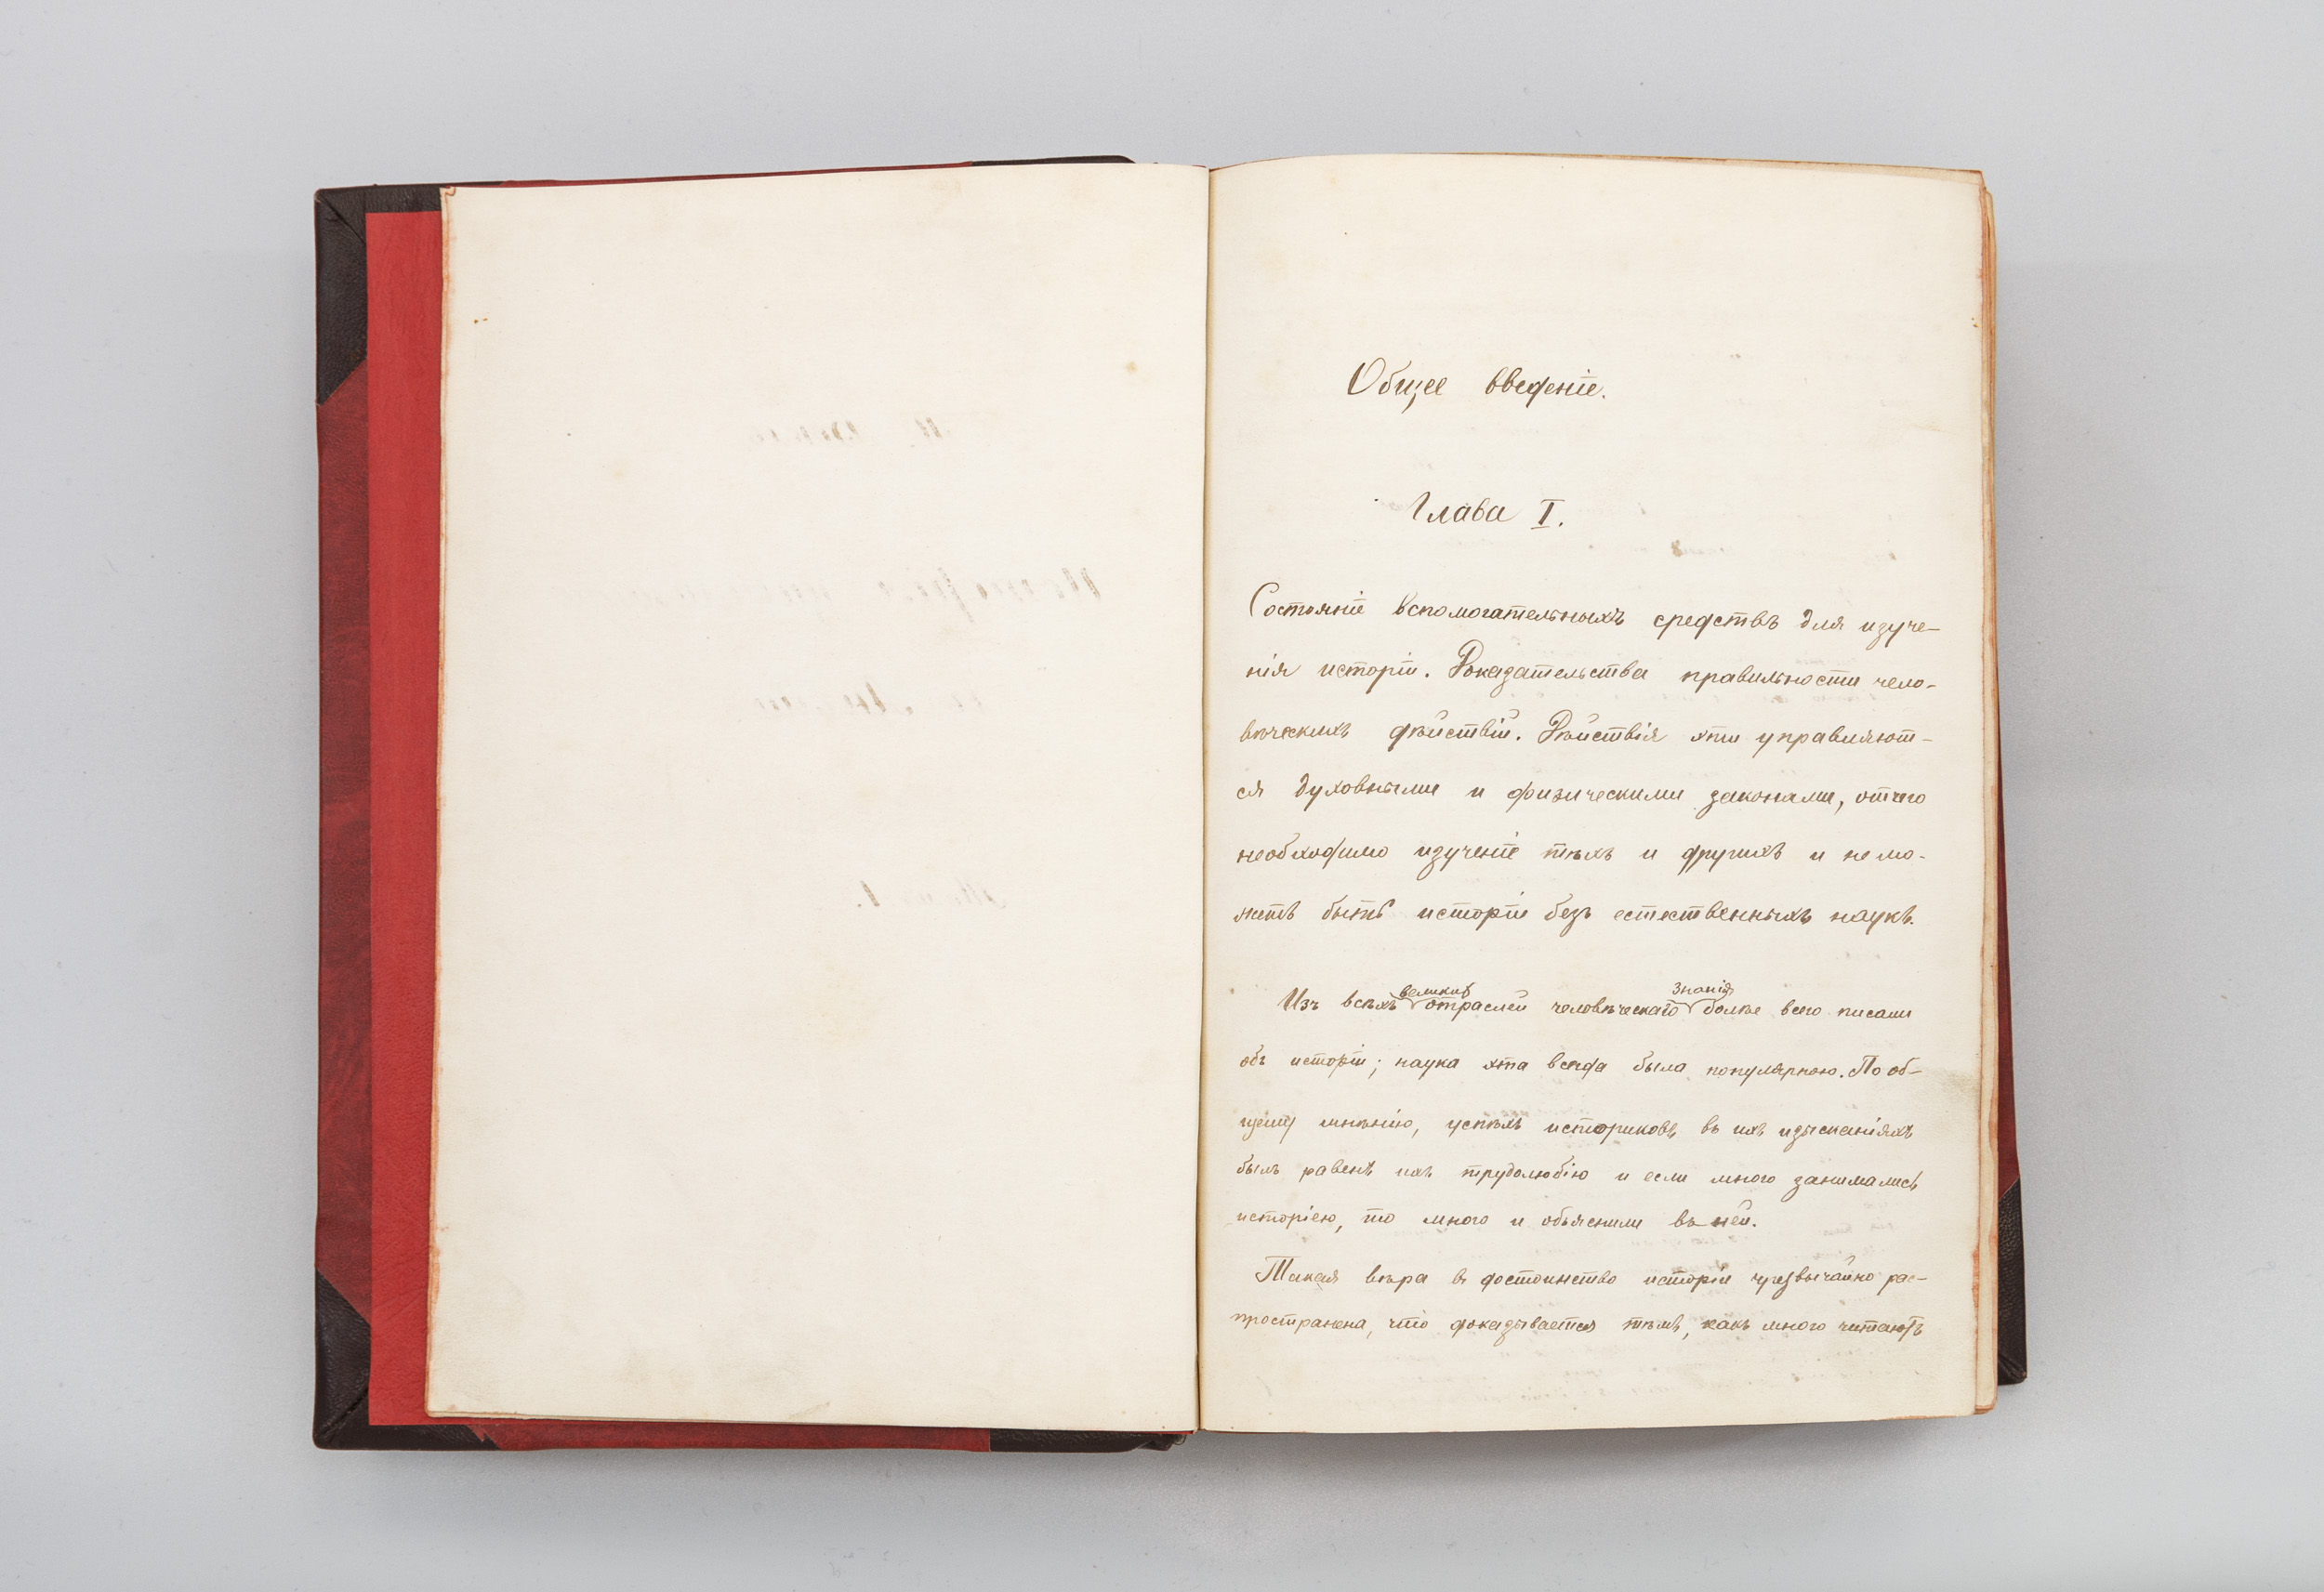 Общее введеніе.
Глава I.
Состояніе вспомогательныхъ средствъ для изуче-
нія исторіи. Доказательства правильности чело-
вѣческихъ дѣйствій. Дѣйствія эти управляют-
ся духовными и физическими законами, отчего
необходимо изученіе тѣхъ и другихъ и не мо-
жетъ быть исторіи безъ естественныхъ наукъ.
великихъ знанія
Изъ всѣхъ отраслей человѣческаго болѣе всего писали
объ исторіи; наука эта всегда была популярною. По об-
щему мнѣнію, успѣхъ историковъ въ ихъ изысканіяхъ
былъ равенъ ихъ трудолюбію и если много занимались
исторіею, то много и объяснили въ ней.
Такая вѣра въ достоинство исторіи чрезвычайно рас-
пространена, что доказывается тѣмъ, какъ много читаютъ